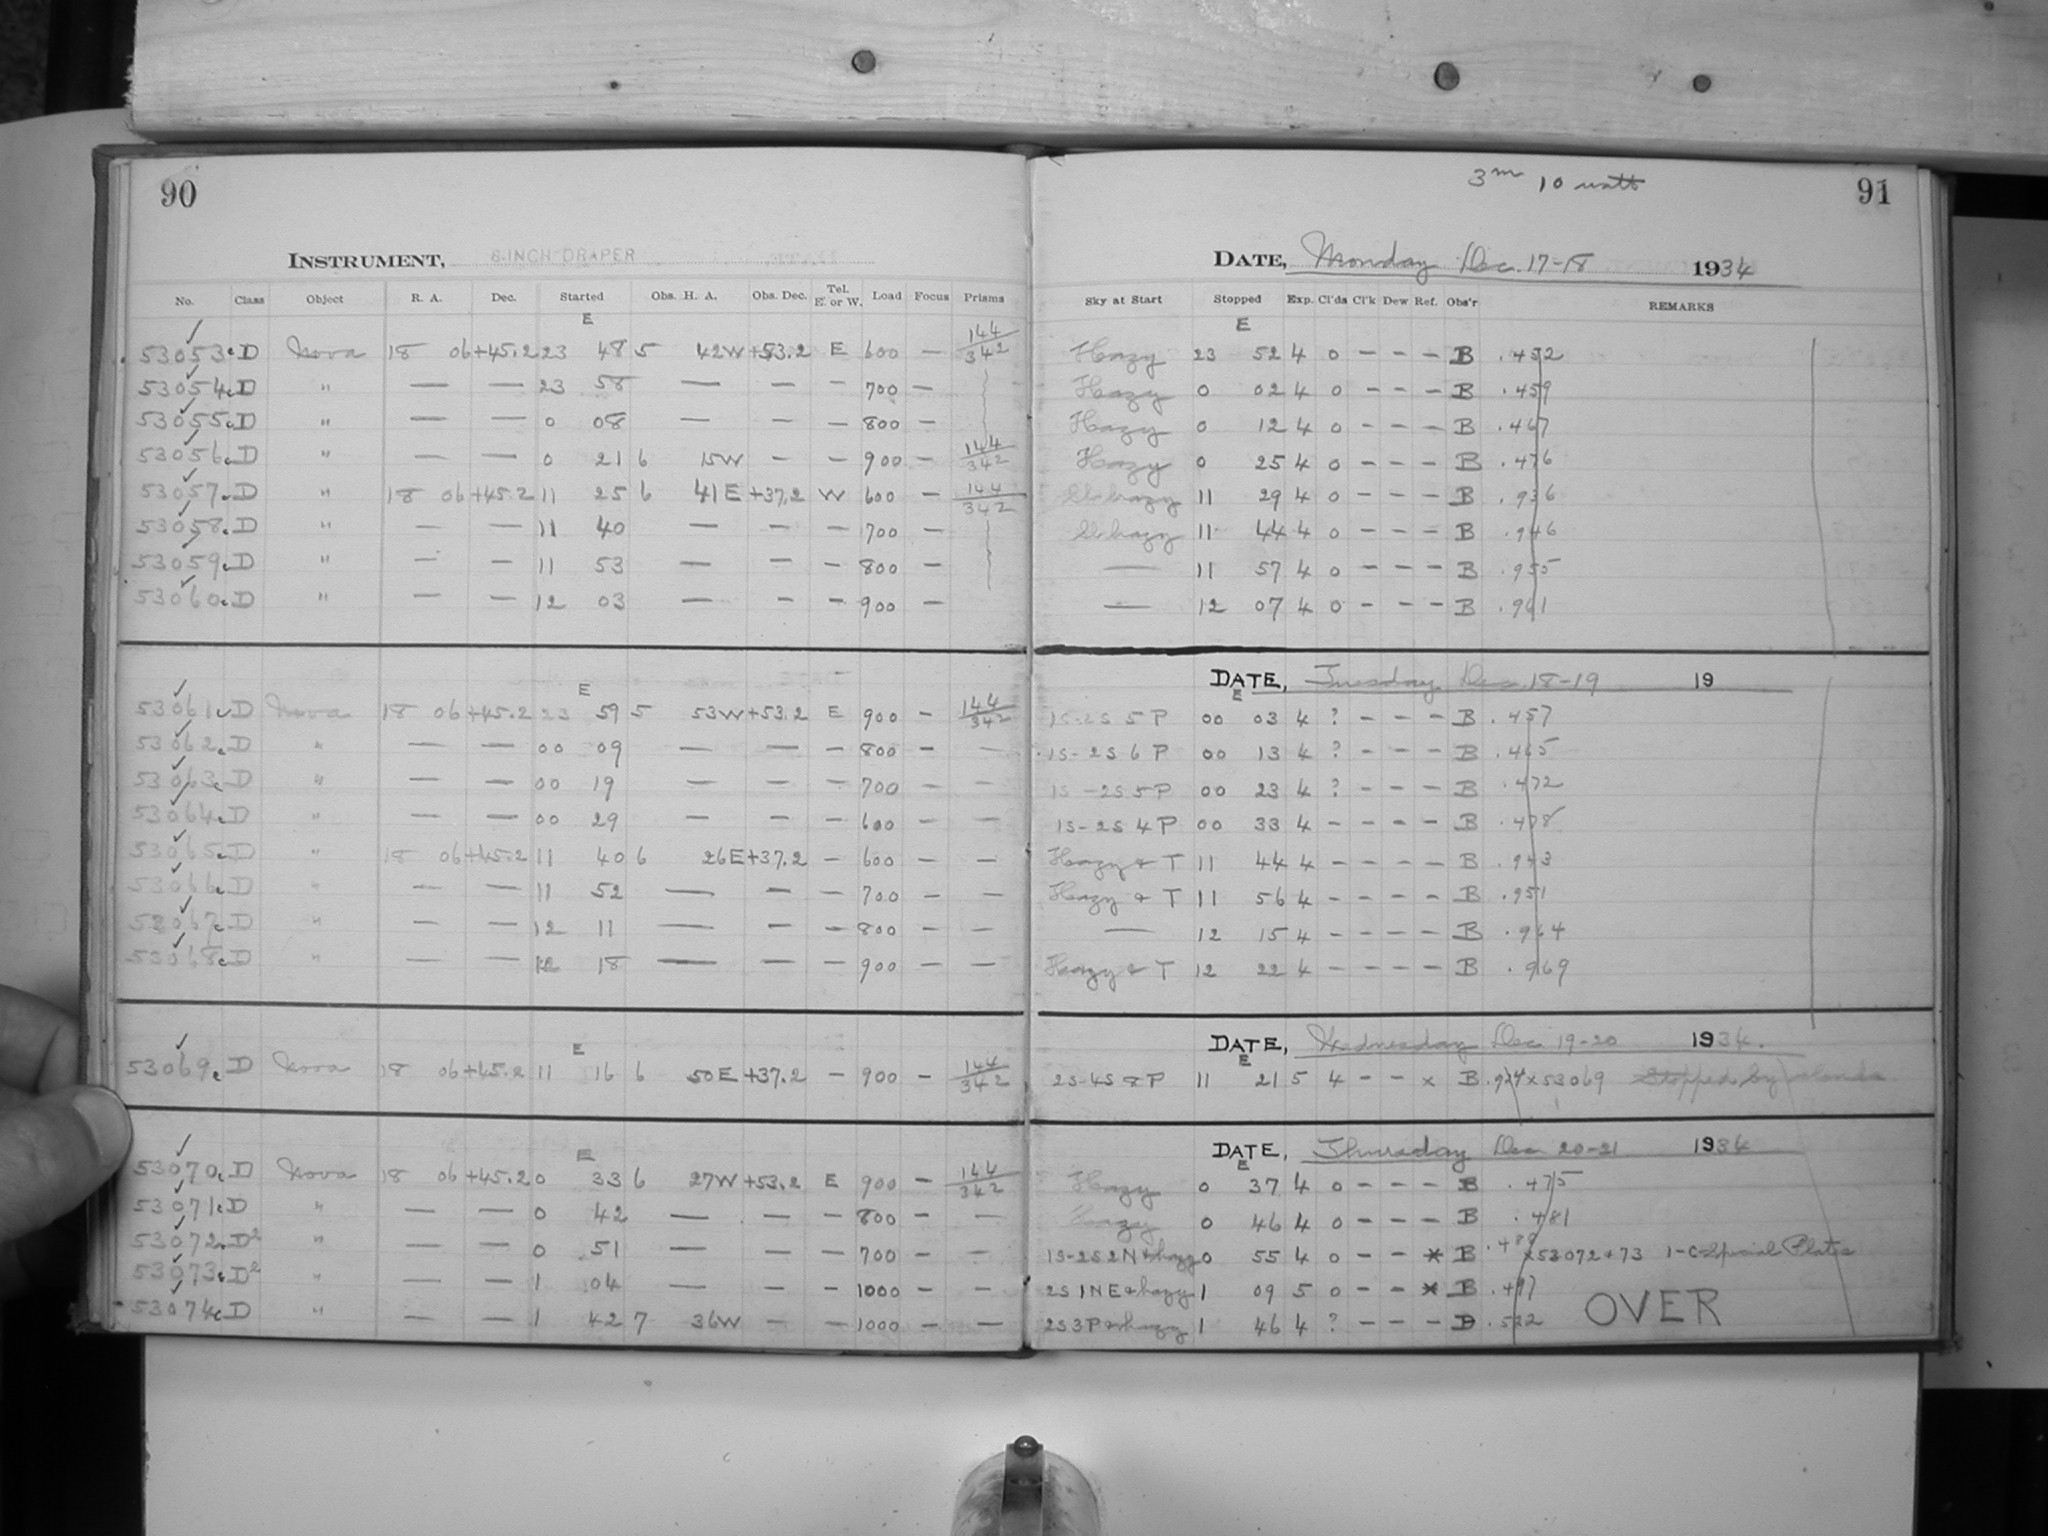 90
INSTRUMENT, 8-INCH DRAPER
No. Class Object R. A. Dec. Started Obs. H. A. Obs. Dec. Tel. E. or W. Load Focus Prisms
E
53053c D Nova 18 06 +45.2 23 48 5 42W +53.2 E 600 — 144/342
53054c D " — — 23 58 — — — 700 —
53055c D " — — 0 08 — — — 800 —
53056c D " — — 0 21 6 15W — — 900 — 144/342
53057c D " 18 06 +45.2 11 25 6 41E +37.2 W 600 — 144/342
53058c D " — — 11 40 — — — 700 —
53059c D " — — 11 53 — — — 800 —
53060c D " — — 12 03 — — — 900 —
E
53061c D Nova 18 06 +45.2 23 59 5 53W +53.2 E 900 — 144/342
53062c D " — — 00 09 — — — 800 — —
53063c D " — — 00 19 — — — 700 — —
53064c D " — — 00 29 — — — 600 — —
53065c D " 18 06 +45.2 11 40 6 26E +37.2 — 600 — —
53066c D " — — 11 52 — — — 700 — —
53067c D " — — 12 11 — — — 800 — —
53068c D " — — 12 18 — — — 900 — —
E
53069c D Nova 18 06 +45.2 11 16 6 50E +37.2 — 900 — 144/342
E
53070c D Nova 18 06 +45.2 0 33 6 27W +53.2 E 900 — 144/342
53071c D " — — 0 42 — — — 800 — —
53072c D² " — — 0 51 — — — 700 — —
53073c D² " — — 1 04 — — — 1000 — —
53074c D " — — 1 42 7 36W — — 1000 — —
3m 10 watt
91
DATE, Monday Dec. 17-18 1934
Sky at Start Stopped Exp. Cl'ds Cl'k Dew Ref. Obs'r REMARKS
E
Hazy 23 52 4 0 — — — B .452
Hazy 0 02 4 0 — — — B .459
Hazy 0 12 4 0 — — — B .467
Hazy 0 25 4 0 — — — B .476
Sl. hazy 11 29 4 0 — — — B .936
Sl. hazy 11 44 4 0 — — — B .946
— 11 57 4 0 — — — B .955
— 12 07 4 0 — — — B .961
DATE, Tuesday Dec. 18-19 19
E
1S-2S 5P 00 03 4 ? — — — B .457
1S-2S 6P 00 13 4 ? — — — B .465
1S-2S 5P 00 23 4 ? — — — B .472
1S-2S 4P 00 33 4 — — — — B .478
Hazy & T 11 44 4 — — — — B .943
Hazy & T 11 56 4 — — — — B .951
— 12 15 4 — — — — B .964
Hazy & T 12 22 4 — — — — B .969
DATE, Wednesday Dec 19-20 1934.
E
2S-4S 8P 11 21 5 4 — — x B .924 x53069 Stopped by clouds
DATE, Thursday Dec 20-21 1934
E
Hazy 0 37 4 0 — — — B .475
Hazy 0 46 4 0 — — — B .481
1S-2S 2N & hazy 0 55 4 0 — — x B .488 x53072+73 1-C-Special Plates
2S 1NE & hazy 1 09 5 0 — — x B .497
2S 3P & hazy 1 46 4 ? — — — B .522
OVER